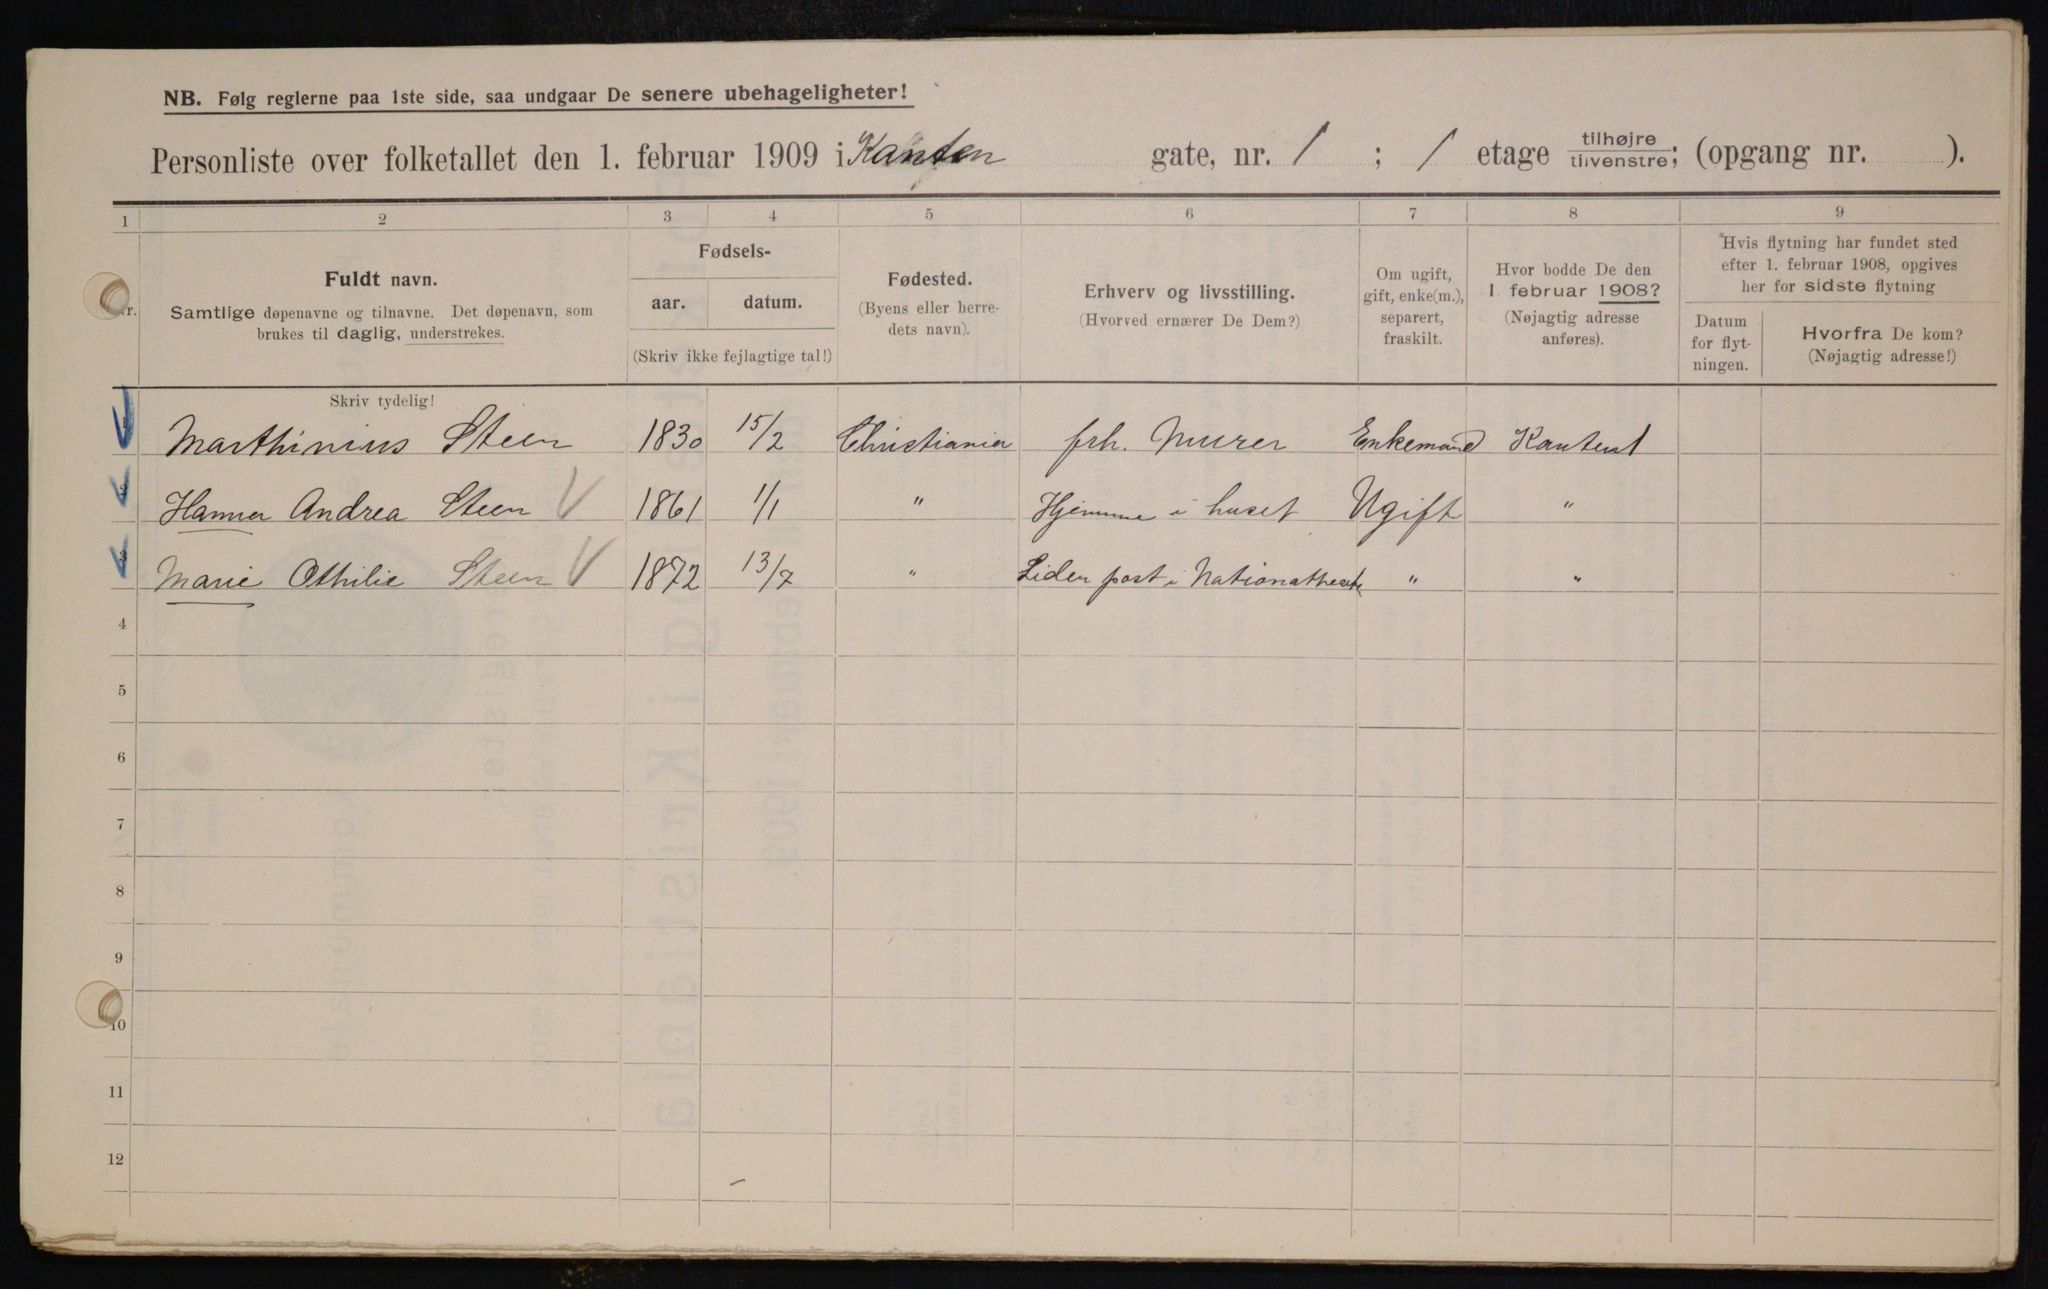 NB. Følg reglerne paa 1ste side, saa undgaar De senere ubehageligheter!
Personliste over folketallet den 1. februar 1909 i Kanten gate, nr. 1 ; 1 etage tilhøjre tilvenstre; (opgang nr. ).
1 2 3 4 5 6 7 8 9
Nr.
Fuldt navn.
Samtlige døpenavne og tilnavne. Det døpenavn, som
brukes til daglig, understrekes.
Skriv tydelig!
Fødsels-
aar. datum.
(Skriv ikke fejlagtige tal!)
Fødested.
(Byens eller herre-
dets navn).
Erhverv og livsstilling.
(Hvorved ernærer De Dem?)
Om ugift,
gift, enke(m.),
separert,
fraskilt.
Hvor bodde De den
1. februar 1908?
(Nøjagtig adresse
anføres).
Hvis flytning har fundet sted
efter 1. februar 1908, opgives
her for sidste flytning
Datum
for flyt-
ningen.
Hvorfra De kom?
(Nøjagtig adresse!)
1 Marthinius Steen 1830 15/2 Christiania frh. Murer Enkemand Kanten 1
2 Hanna Andrea Steen 1861 1/1 " Hjemme i huset Ugift "
3 Marie Othilie Steen 1872 13/7 " Liden post i Nationaltheatr " "
4
5
6
7
8
9
10
11
12